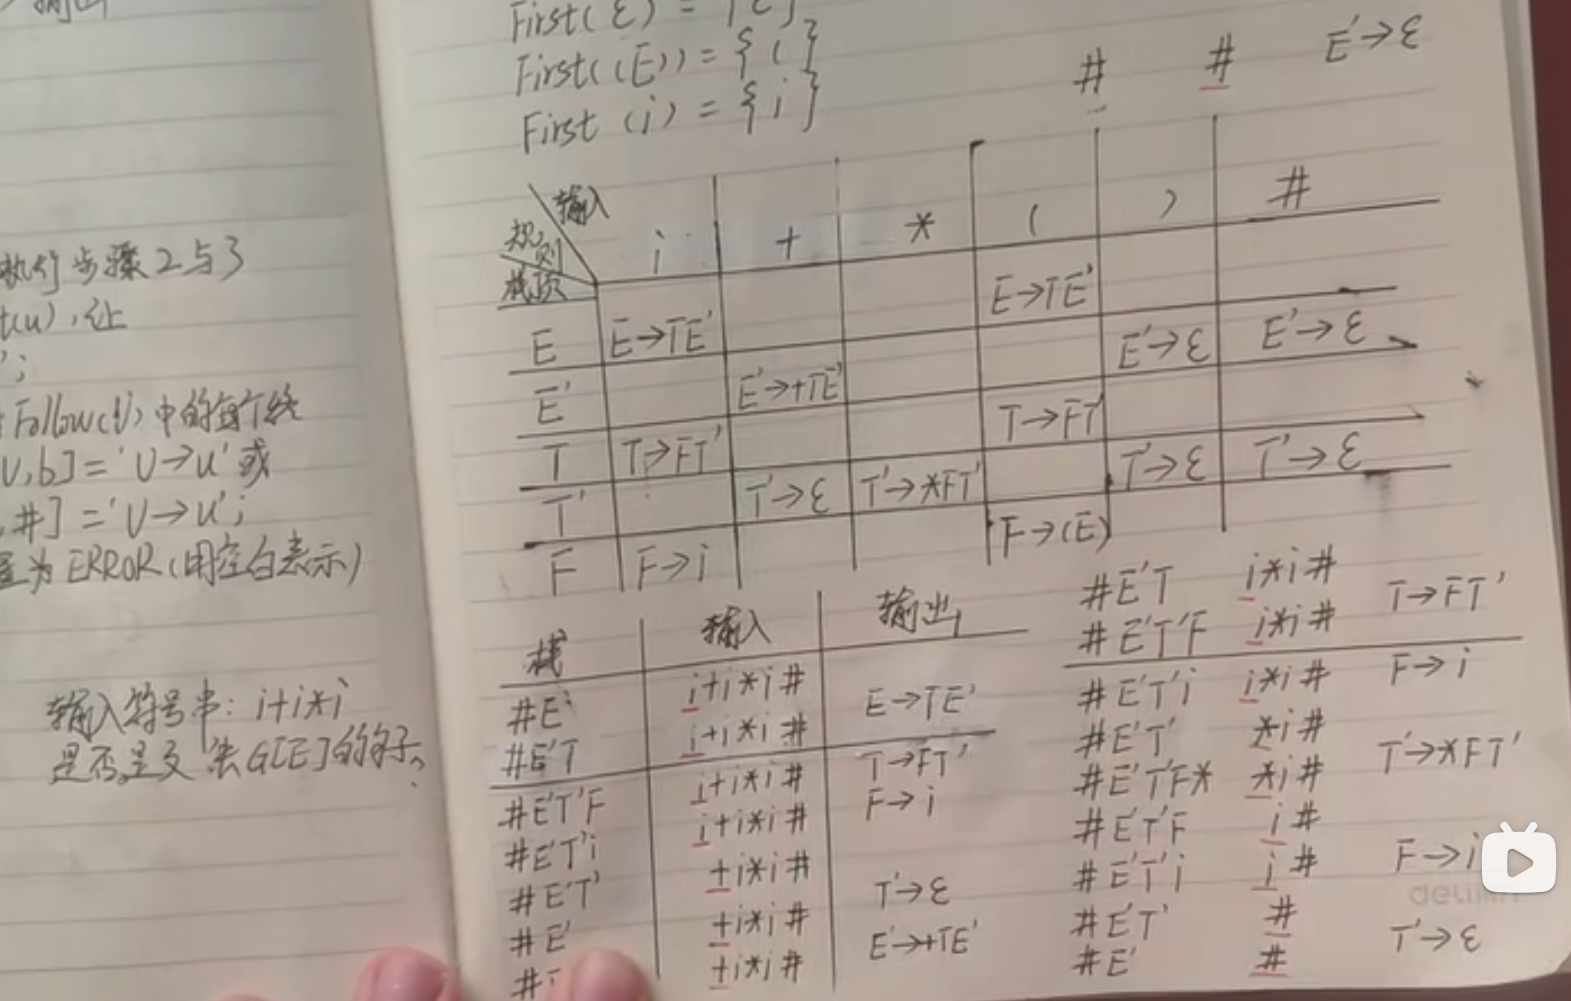 输出
执行步骤2与3
t(u),让
';
Follow(U)中的每个终
U,b]='U→u'或
,#]='U→u';
置为ERROR(用空白表示)
输入符号串:i+i*i
是否是文法G[E]的句子?
First(ε)={ε}
First((E))={(}
First(i)={i}
# # E'→ε
输入
规则
栈顶
i + * ( ) #
E E→TE' E→TE'
E' E'→+TE' E'→ε E'→ε
T T→FT' T→FT'
T' T'→ε T'→*FT' T'→ε T'→ε
F F→i F→(E)
栈 输入 输出
#E i+i*i# E→TE'
#E'T i+i*i# T→FT'
#E'T'F i+i*i# F→i
#E'T'i i+i*i#
#E'T' +i*i# T'→ε
#E' +i*i# E'→+TE'
# +i*i#
#E'T i*i# T→FT'
#E'T'F i*i#
#E'T'i i*i# F→i
#E'T' *i#
#E'T'F* *i# T'→*FT'
#E'T'F i#
#E'T'i i# F→i
#E'T' #
#E' # T'→ε